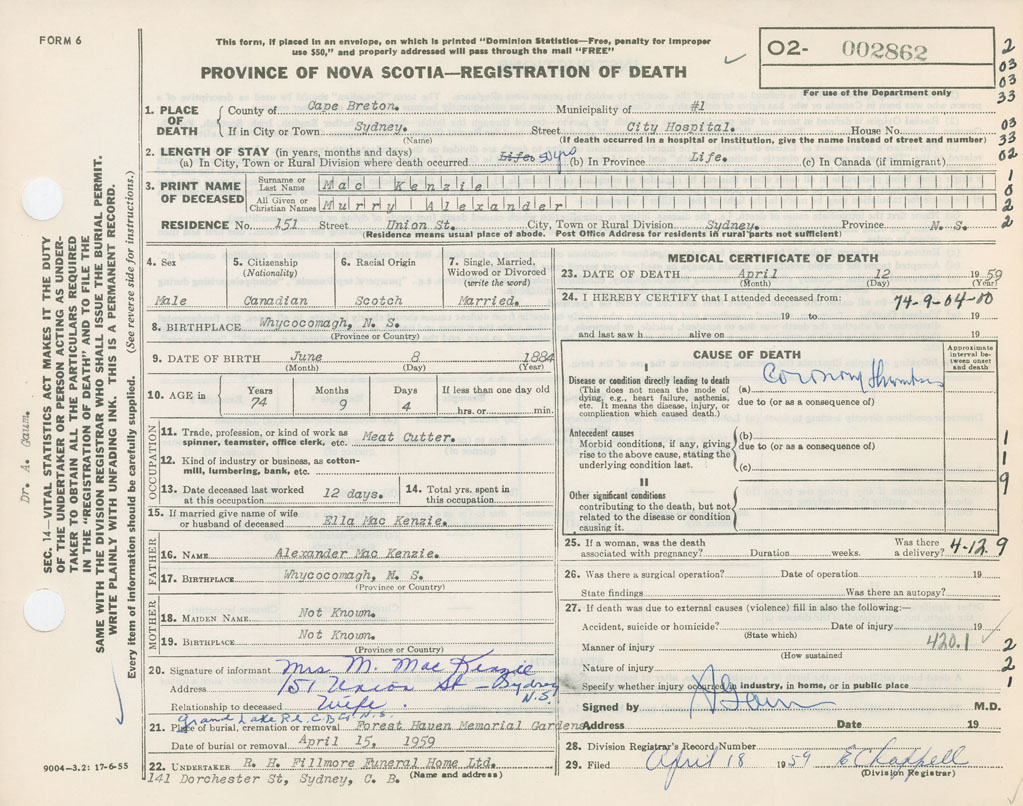 FORM 6
This form, if placed in an envelope, on which is printed "Dominion Statistics—Free, penalty for improper
use $50," and properly addressed will pass through the mail "FREE"
PROVINCE OF NOVA SCOTIA—REGISTRATION OF DEATH
02- 002862
For use of the Department only
2
03
03
33
03
33
02
1
0
2
2
1. PLACE OF DEATH County of Cape Breton. Municipality of #1
If in City or Town Sydney. Street City Hospital. House No.
(Name) (If death occurred in a hospital or institution, give the name instead of street and number)
2. LENGTH OF STAY (in years, months and days)
(a) In City, Town or Rural Division where death occurred Life. 50yrs (b) In Province Life. (c) In Canada (if immigrant)
3. PRINT NAME OF DECEASED
Surname or Last Name Mac Kenzie
All Given or Christian Names Murry Alexander
RESIDENCE No. 151 Street Union St. City, Town or Rural Division Sydney. Province N. S.
(Residence means usual place of abode. Post Office Address for residents in rural parts not sufficient)
4. Sex
Male
5. Citizenship
(Nationality)
Canadian
6. Racial Origin
Scotch
7. Single, Married,
Widowed or Divorced
(write the word)
Married.
8. BIRTHPLACE Whycocomagh, N. S.
(Province or Country)
9. DATE OF BIRTH June 8 1884
(Month) (Day) (Year)
10. AGE in
Years Months Days If less than one day old
74 9 4 hrs. or min.
OCCUPATION
11. Trade, profession, or kind of work as
spinner, teamster, office clerk, etc. Meat Cutter.
12. Kind of industry or business, as cotton-
mill, lumbering, bank, etc.
13. Date deceased last worked
at this occupation 12 days.
14. Total yrs. spent in
this occupation
15. If married give name of wife
or husband of deceased Ella Mac Kenzie.
FATHER
16. NAME Alexander Mac Kenzie.
17. BIRTHPLACE Whycocomagh, N. S.
(Province or Country)
MOTHER
18. MAIDEN NAME Not Known.
19. BIRTHPLACE Not Known.
(Province or Country)
20. Signature of informant Mrs M. Mac Kenzie
Address 151 Union St - Sydney N.S.
Relationship to deceased Wife.
Grand Lake Rd. C.B Co N.S.
21. Place of burial, cremation or removal Forest Haven Memorial Gardens
Date of burial or removal April 15, 1959
22. UNDERTAKER R. H. Fillmore Funeral Home Ltd.
141 Dorchester St, Sydney, C. B. (Name and address)
MEDICAL CERTIFICATE OF DEATH
23. DATE OF DEATH April 12 1959
(Month) (Day) (Year)
24. I HEREBY CERTIFY that I attended deceased from:
74-9-04-00
19 to 19
and last saw h alive on 19
CAUSE OF DEATH
Approximate
interval be-
tween onset
and death
I
Disease or condition directly leading to death
(This does not mean the mode of
dying, e.g., heart failure, asthenia,
etc. It means the disease, injury, or
complication which caused death.)
(a) Coronary Thrombus
due to (or as a consequence of)
Antecedent causes
Morbid conditions, if any, giving
rise to the above cause, stating the
underlying condition last.
(b)
due to (or as a consequence of)
(c)
II
Other significant conditions
contributing to the death, but not
related to the disease or condition
causing it.
1
1
9
25. If a woman, was the death
associated with pregnancy? Duration weeks.
Was there
a delivery?
4-12 9
26. Was there a surgical operation? Date of operation 19
State findings Was there an autopsy?
27. If death was due to external causes (violence) fill in also the following:—
Accident, suicide or homicide? Date of injury 19
(State which)
420.1
Manner of injury
(How sustained
2
Nature of injury
2
Specify whether injury occurred in industry, in home, or in public place
1
Signed by M.D.
Address Date 19
28. Division Registrar's Record Number
29. Filed April 18 1959 E Chappell
(Division Registrar)
Dr. A. Gaum.
SEC. 14—VITAL STATISTICS ACT MAKES IT THE DUTY
OF THE UNDERTAKER OR PERSON ACTING AS UNDER-
TAKER TO OBTAIN ALL THE PARTICULARS REQUIRED
IN THE "REGISTRATION OF DEATH" AND TO FILE THE
SAME WITH THE DIVISION REGISTRAR WHO SHALL ISSUE THE BURIAL PERMIT.
WRITE PLAINLY WITH UNFADING INK. THIS IS A PERMANENT RECORD.
Every item of information should be carefully supplied. (See reverse side for instructions.)
9004-3.2: 17-6-55